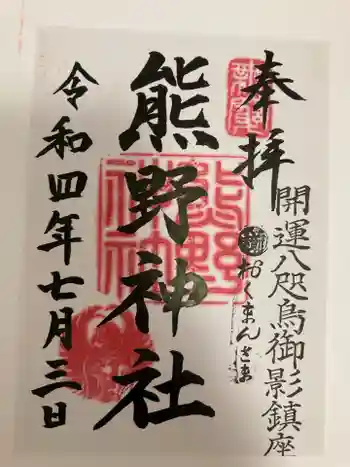 奉拝
開運八咫烏御影鎮座
おくまんさま
熊野神社
令和四年七月三日